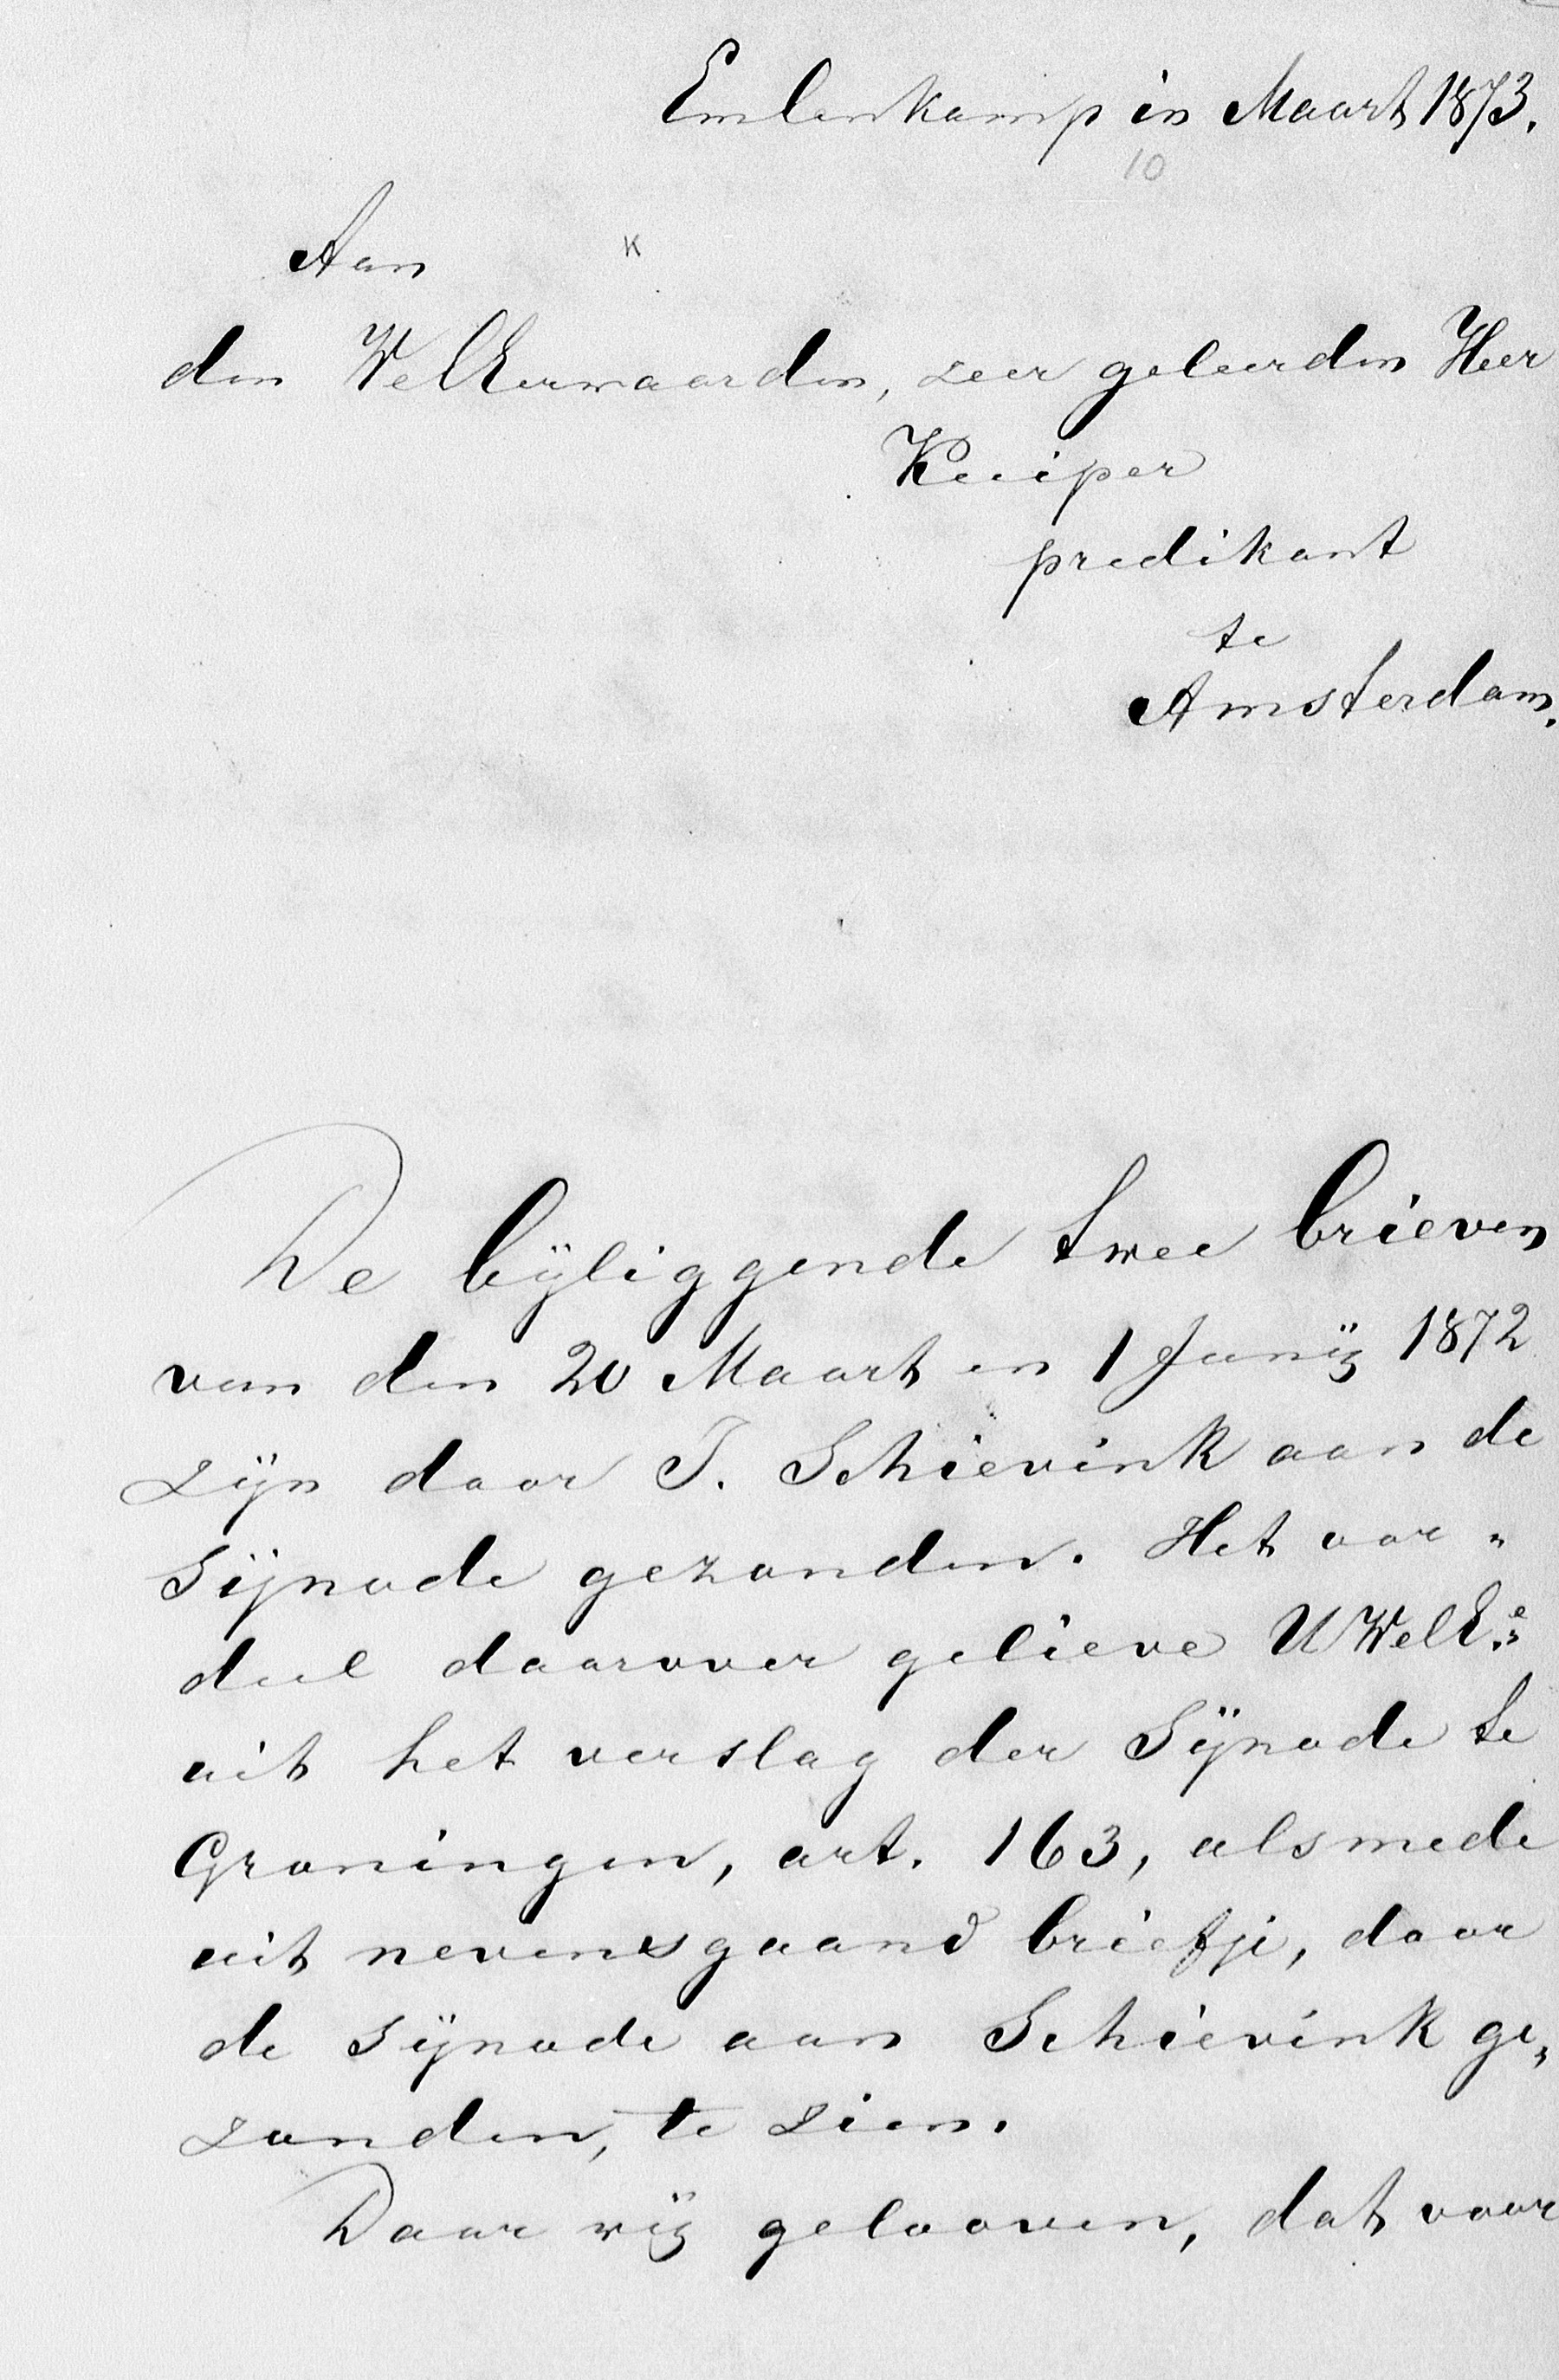 Emlenkamp in Maart 1873.
10
Aan
K
den WelEerwaarden, zeer geleerden Heer
Kuiper
predikant
te
Amsterdam.
De bijliggende twee brieven
van den 20 Maart en 1 Junij 1872
zijn door J. Schievink aan de
Sijnode gezonden. Het oor„
deel daarover gelieve UWelE.e
uit het verslag der Sijnode te
Groningen, art. 163, alsmede
uit nevensgaand briefje, door
de Sijnode aan Schievink ge„
zonden, te zien.
Daar wij gelooven, dat voor